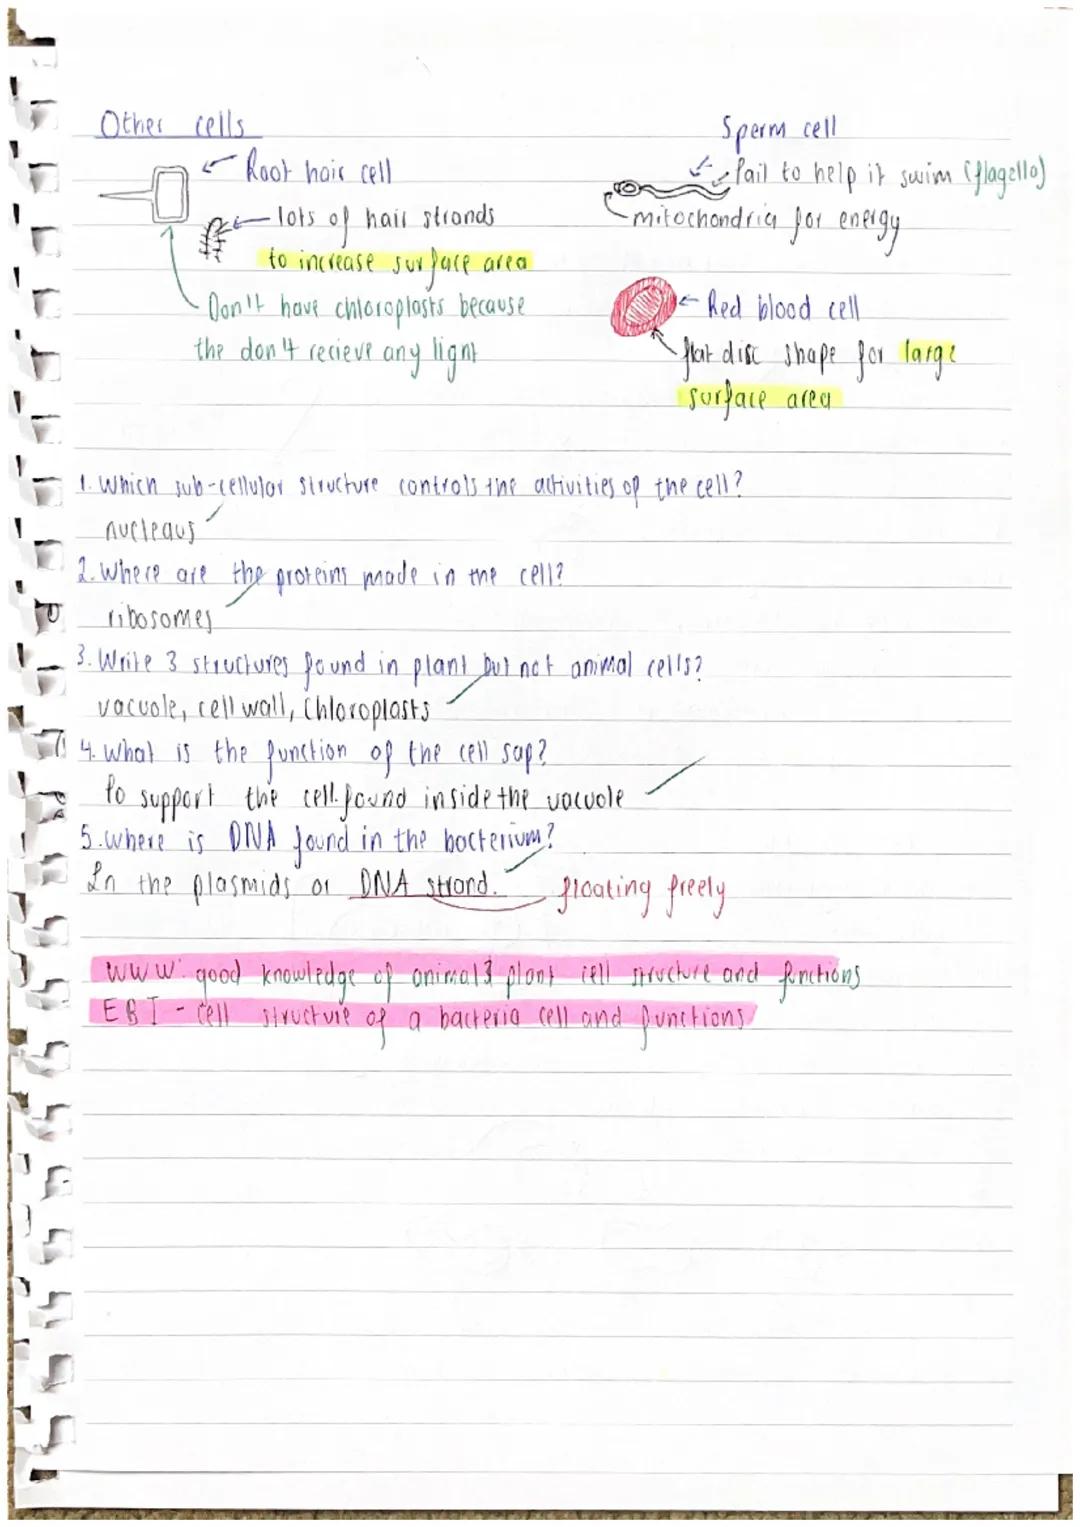 Other cells
Root hair cell
lots of hair strands
to increase surface area
Don't have chloroplasts because
the don't recieve any light
Sperm cell
Tail to help it swim (flagella)
mitochondria for energy
Red blood cell
flat disc shape for large
surface area
1. Which sub-cellular structure controls the activities of the cell?
nucleaus
2. Where are the proteins made in the cell?
ribosomes
3. Write 3 structures found in plant but not animal cells?
vacuole, cell wall, Chloroplasts
4. What is the function of the cell sap?
to support the cell. found inside the vacuole
5. where is DNA found in the bacterium?
In the plasmids or DNA strand. floating freely
WWW: good knowledge of animal & plant cell structure and functions
EBI - cell structure of a bacteria cell and functions